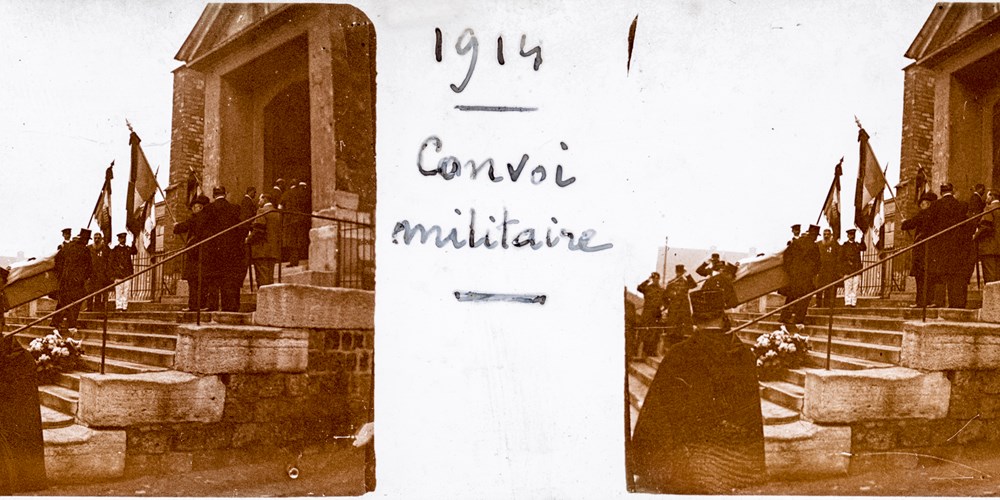 1914
Convoi
militaire